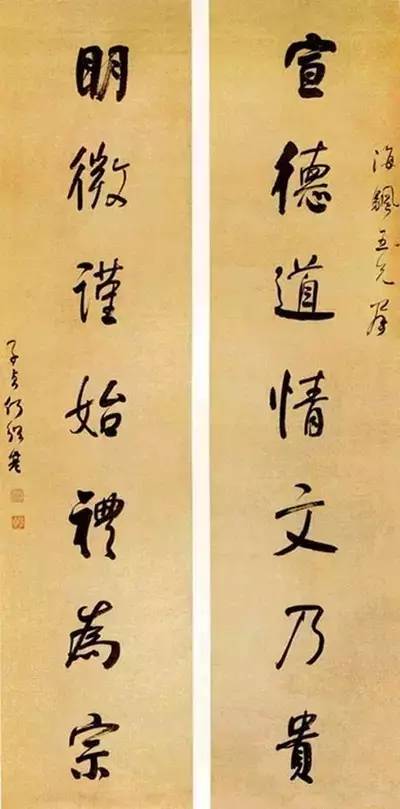 海颿五兄屬
宣德道情文乃貴
明微謹始禮為宗
子貞何紹基